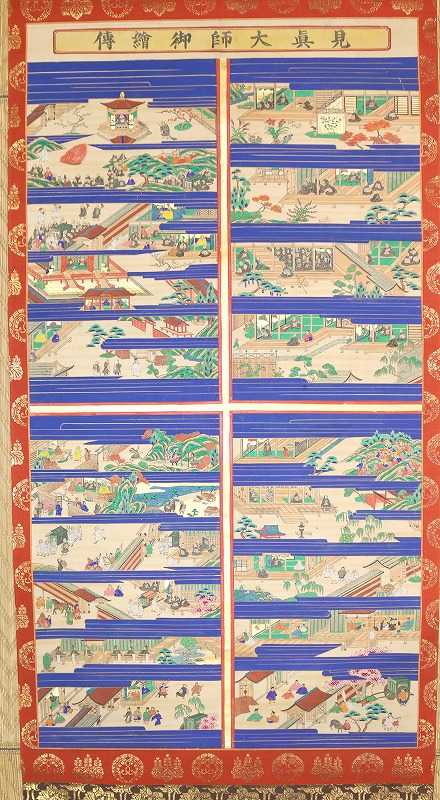 見眞大師御繪傳